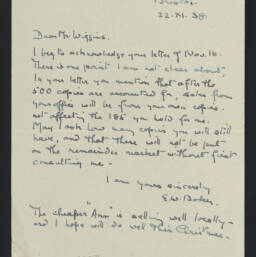 Bristol.
22-XI-38
Dear Mr Wiggins,
I beg to acknowledge your letter of Nov. 16.
There is one point I am not clear about.
In your letter you mention that after the
500 copies are accounted for, sales from
your office will be from your own copies,
not affecting the 185 you hold for me.
May I ask how many copies you will still
have, and that there will not be put
on the remainder market without first
consulting me.
I am yours sincerely
E.W.
The cheaper "Ann" is selling well locally —
and I hope will do well this Christmas.